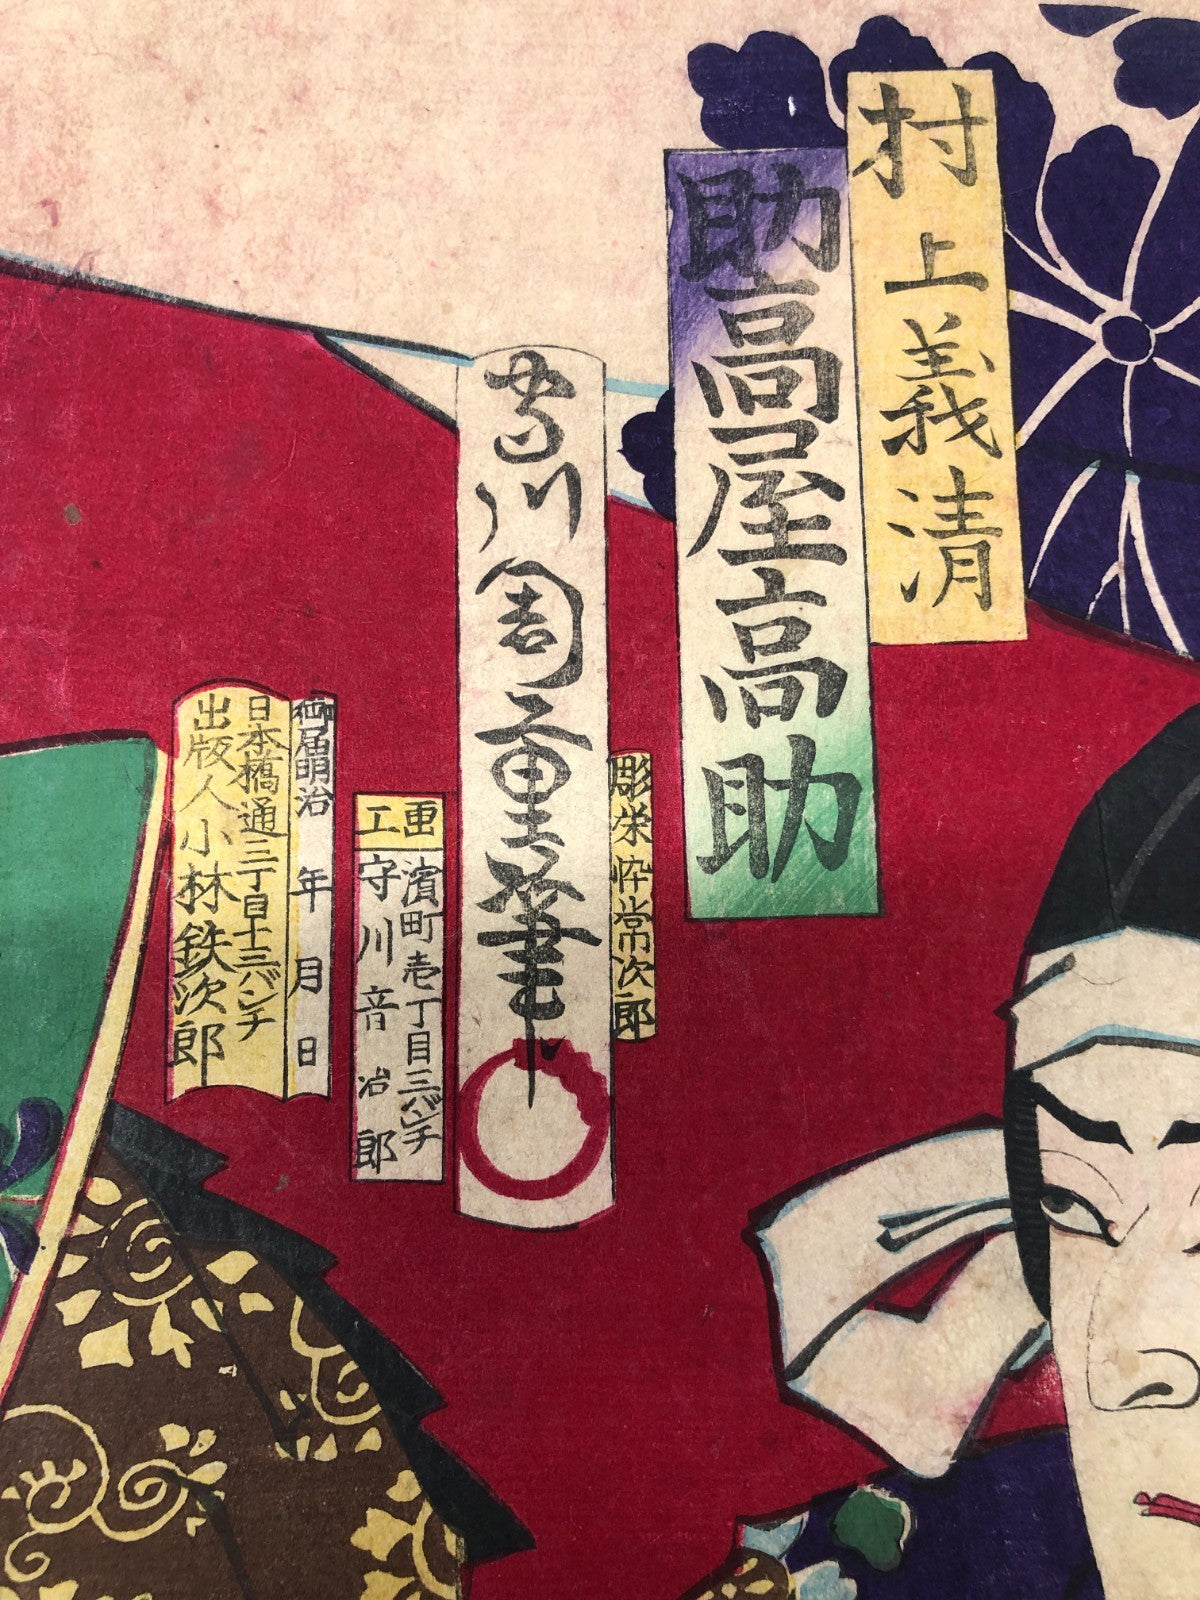 村上義清
助高屋高助
彫栄
常次郎
豊川周重筆
画工
濱町壱丁目三バンチ
守川音治郎
御届明治 年 月 日
日本橋通三丁目十三バンチ
出版人小林鉄次郎